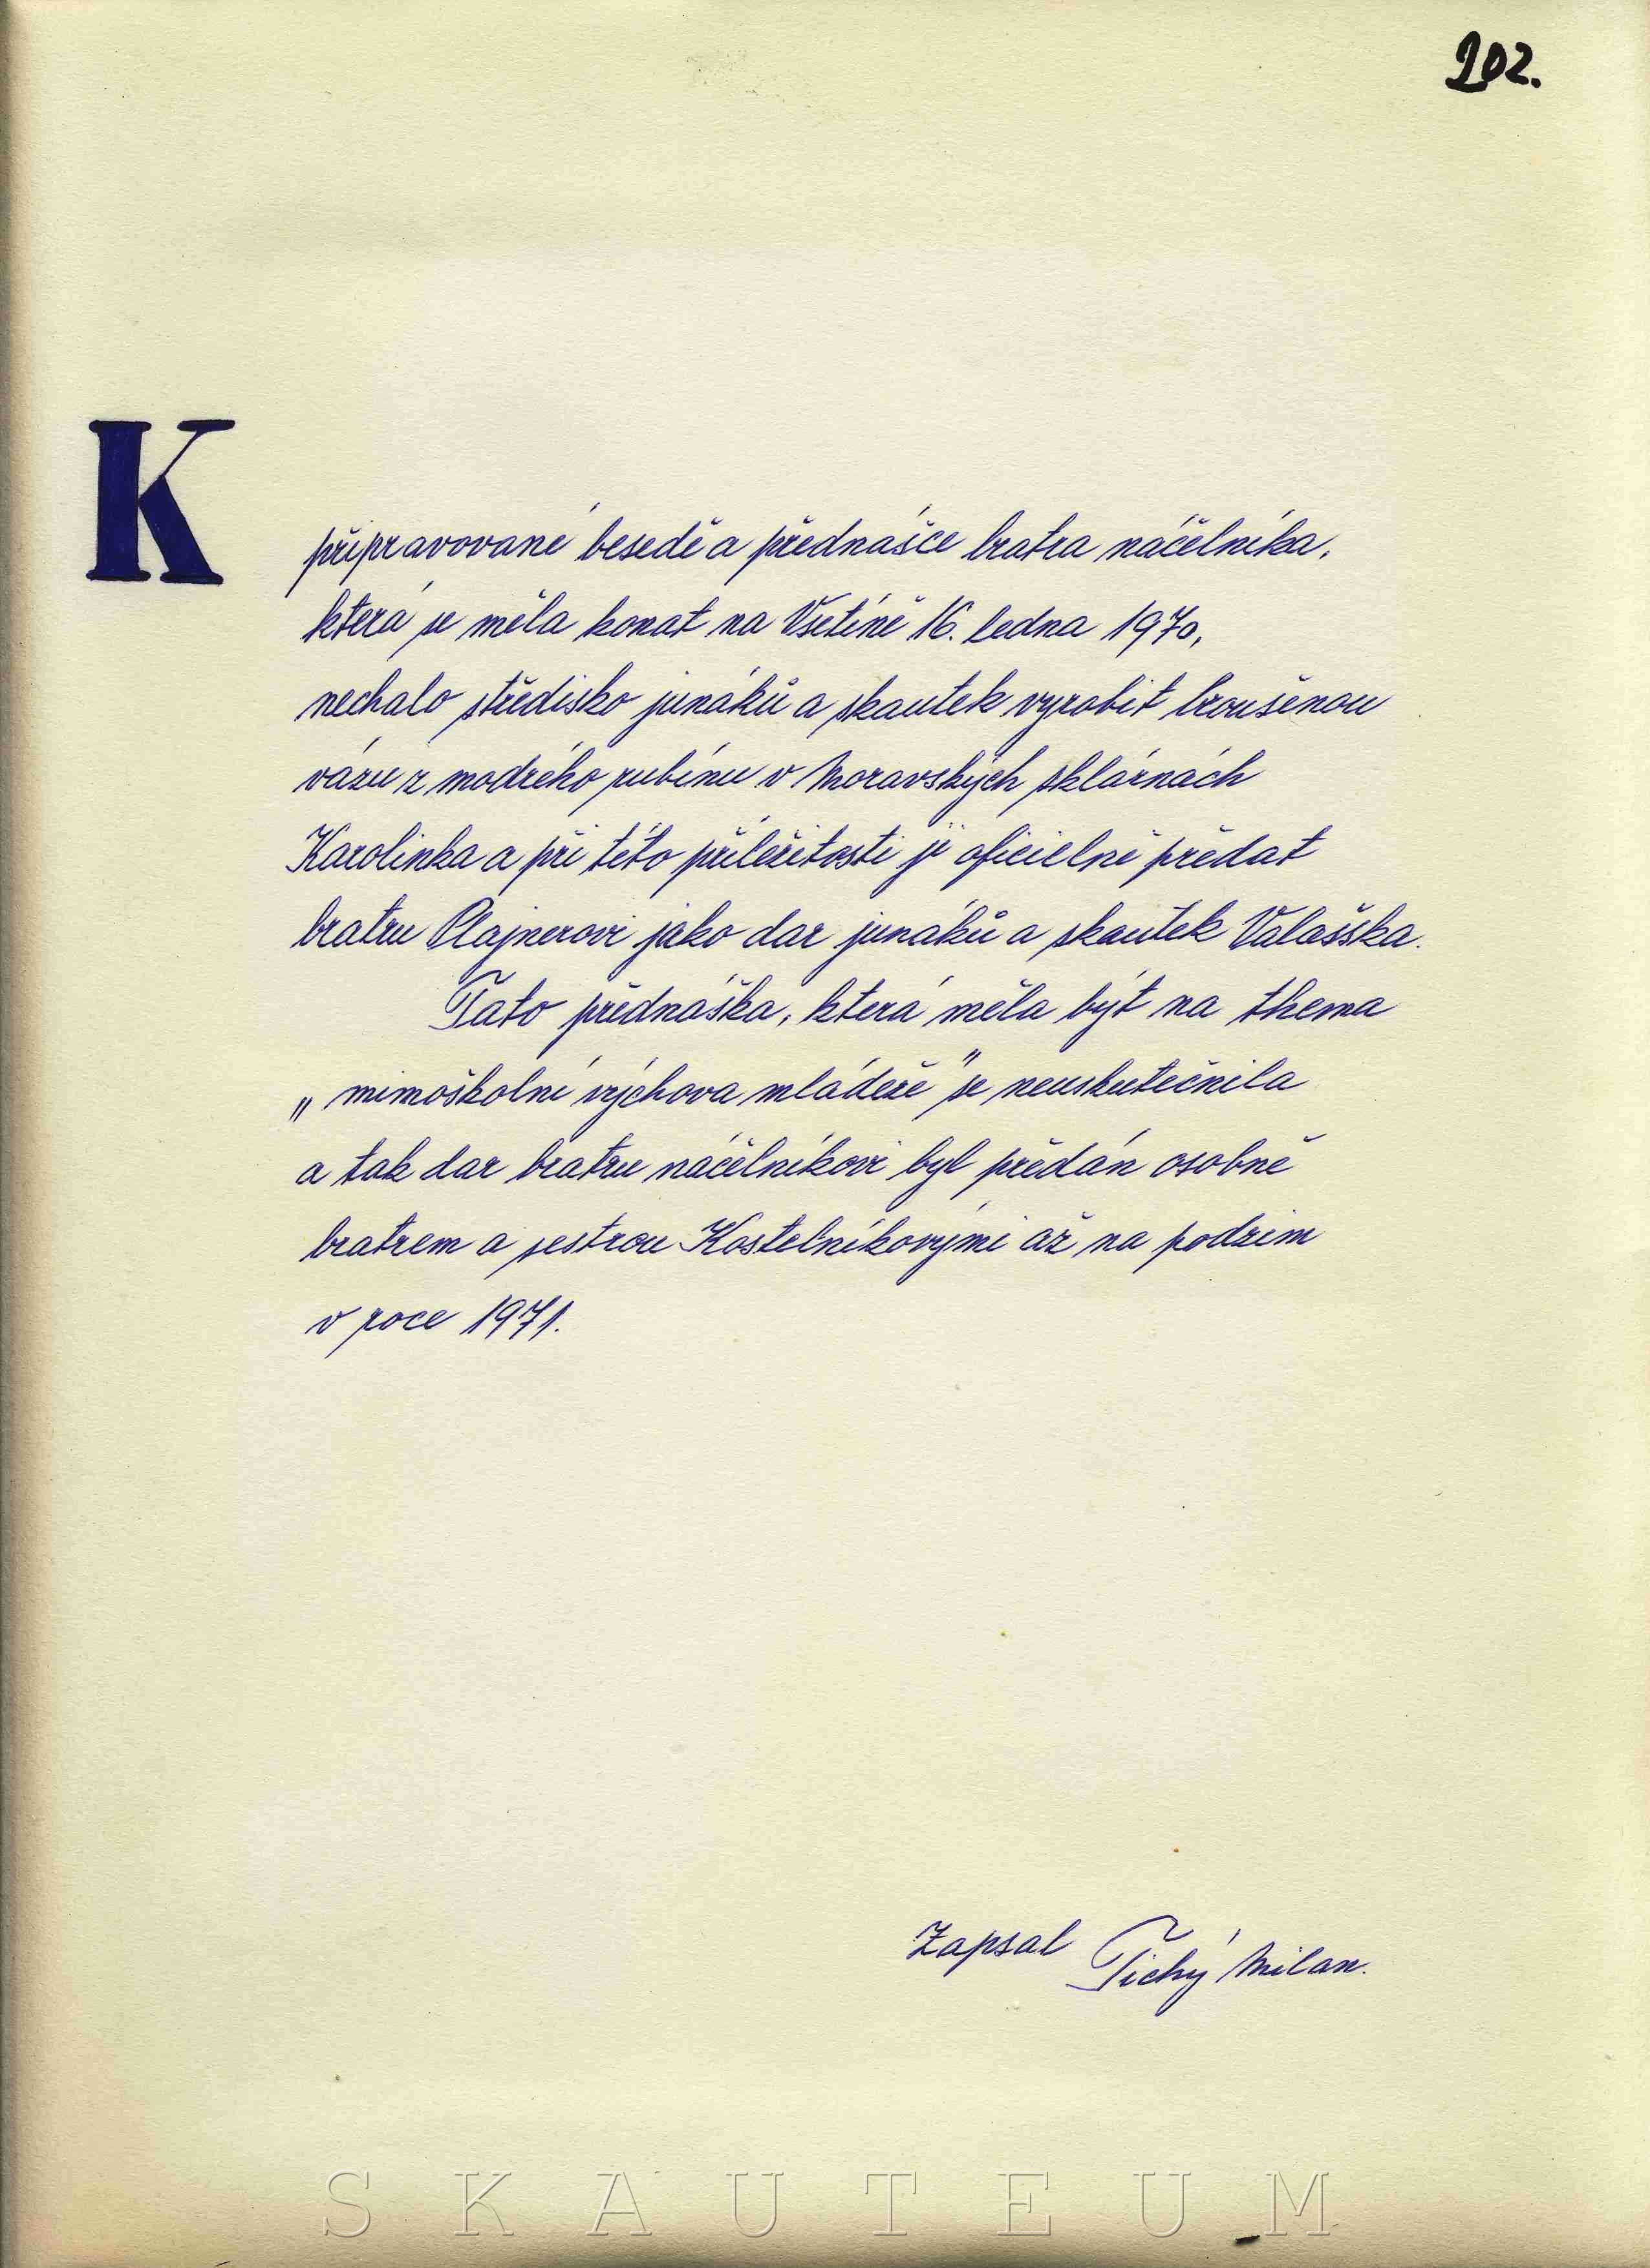 202.
K
připravované besedě a přednášce bratra náčelníka,
která se měla konat na Vsetíně 16. ledna 1970,
nechalo středisko junáků a skautek vyrobit broušenou
vázu z modrého rubínu v Moravských sklárnách
Karolinka a při této příležitosti ji oficielně předat
bratru Plajnerovi jako dar junáků a skautek Valašska.
Tato přednáška, která měla být na thema
„mimoškolní výchova mládeže" se neuskutečnila
a tak dar bratru náčelníkovi byl předán osobně
bratrem a sestrou Kostelníkovými až na podzim
v roce 1971.
Zapsal Tichý Milan.
SKAUTEUM